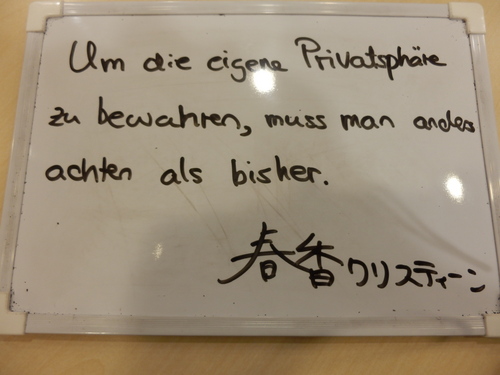 Um die eigene Privatsphäre
zu bewahren, muss man anders
achten als bisher.
春香クリスティーン